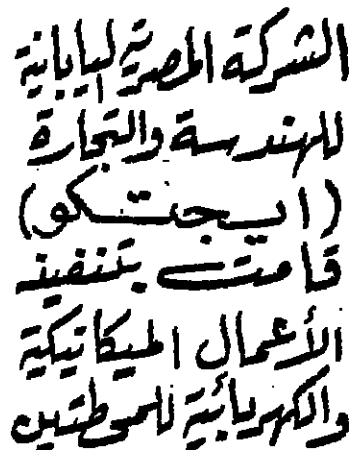 الشركة المصرية اليابانية
للهندسة والتجارة
(ايجتكو)
قامت بتنفيذ
الأعمال الميكانيكية
والكهربائية للمحطتين